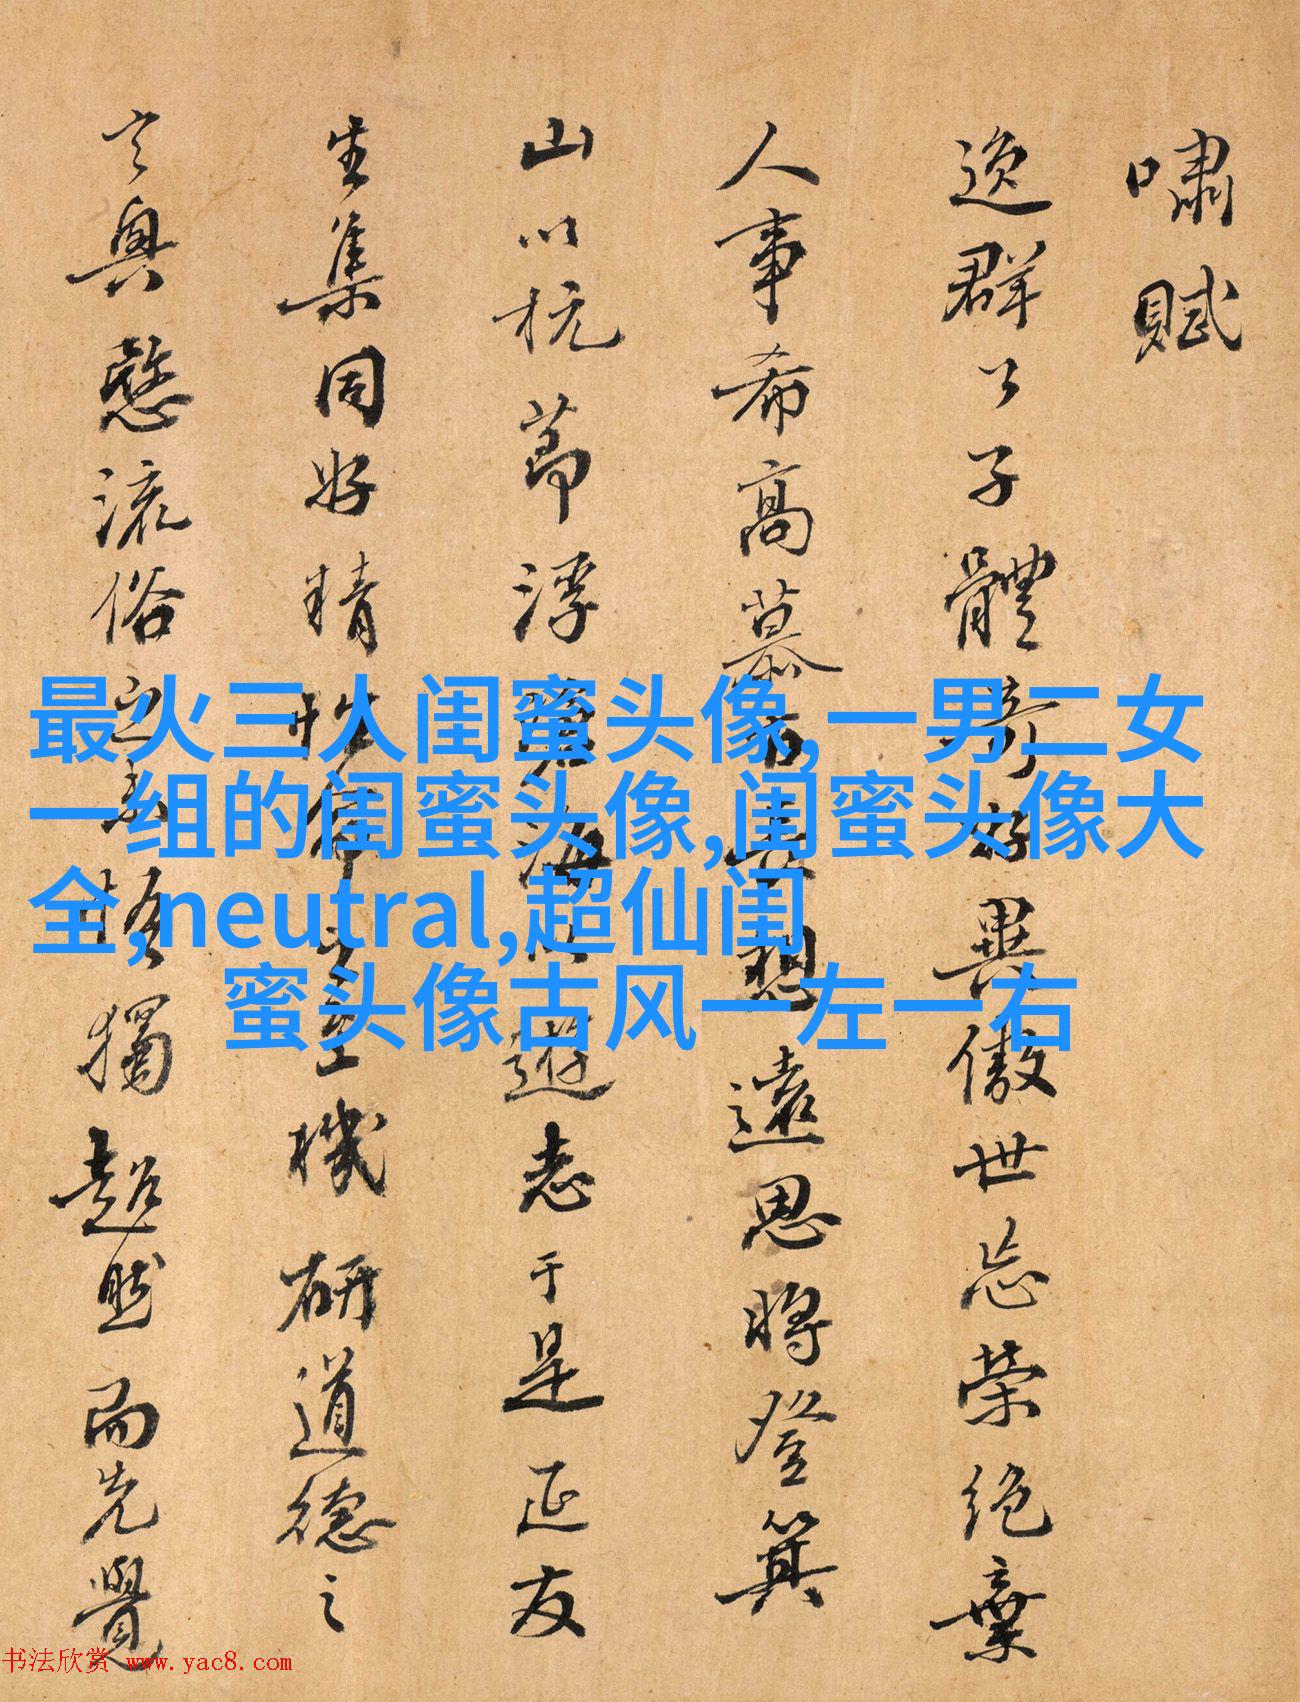 嘯賦
逸群公子體奇好異傲世忘榮絕棄
人事希高慕古長想遠思將登箕
山以抗節浮滄海以遊志于是延友
生集同好精性命之至機研道德之
玄奧愍流俗之未悟獨超然而先覺
最火三人闺蜜头像,一男二女
一组的闺蜜头像,闺蜜头像大
全,neutral,超仙闺
蜜头像古风一左一右
书法欣赏 www.yac8.com